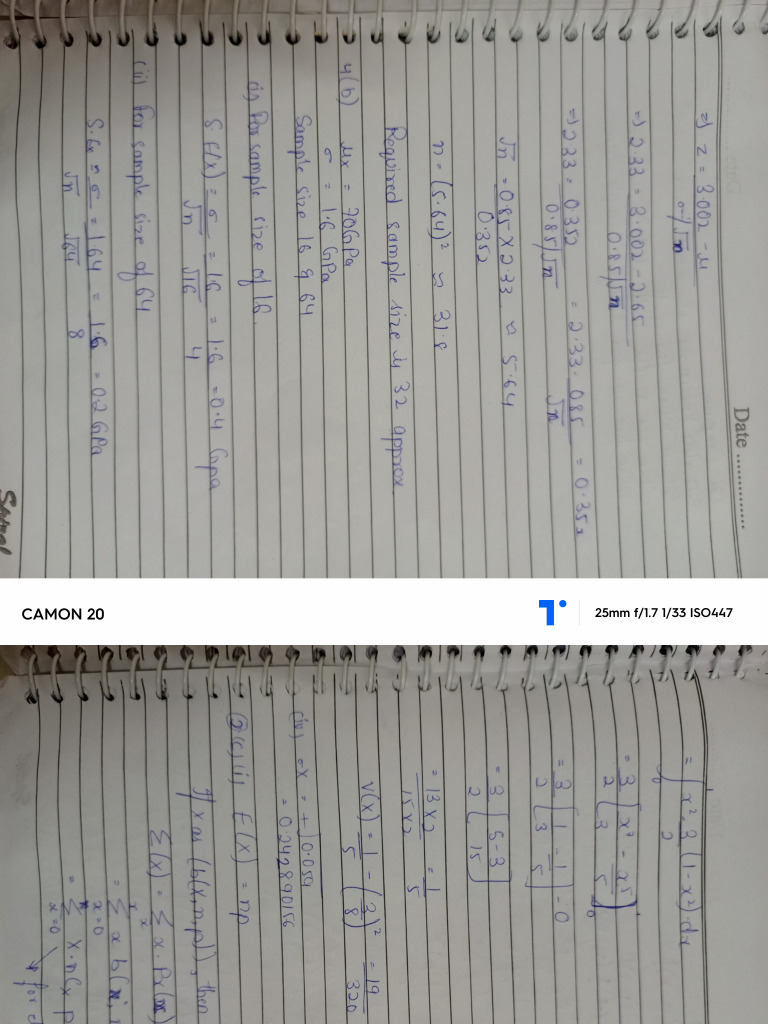 Date ..............
=) z = 3.002 - μ / σ/√n
=) 2.33 = 3.002 - 2.65 / 0.85/√n
=) 2.33 = 0.352 / 0.85/√n = 2.33 . 0.85 / √n = 0.352
√n = 0.85 X 2.33 / 0.352 ≈ 5.64
n = (5.64)² ≈ 31.8
Required sample size is 32 approx
4(b) μx = 70GPa
σ = 1.6 GPa
Sample size 16 & 64
(i) For sample size of 16.
S.E(x̄) = σ/√n = 1.6/√16 = 1.6/4 = 0.4 Gpa
(ii) For sample size of 64
S.Ex = σ/√n = 1.64/√64 = 1.6/8 = 0.2 GPa
CAMON 20
25mm f/1.7 1/33 ISO447
= ∫ x². 3/2 (1-x²).dx
= 3/2 [x³/3 - x⁵/5]₀
= 3/2 [1/3 - 1/5] - 0
= 3/2 [5-3/15]
= 13 X 2 / 15 X 2 = 1/5
V(X) = 1/5 - (3/8)² = 19/320
(iv) σX = +√0.059
= 0.242890156
2(c)(i) E(X) = np
If x as (b(x,n,p)), then
Σ(x) = Σ x. Px(x)
= Σ x b(x,
x=0
= Σ x. n(x p
x=0
for